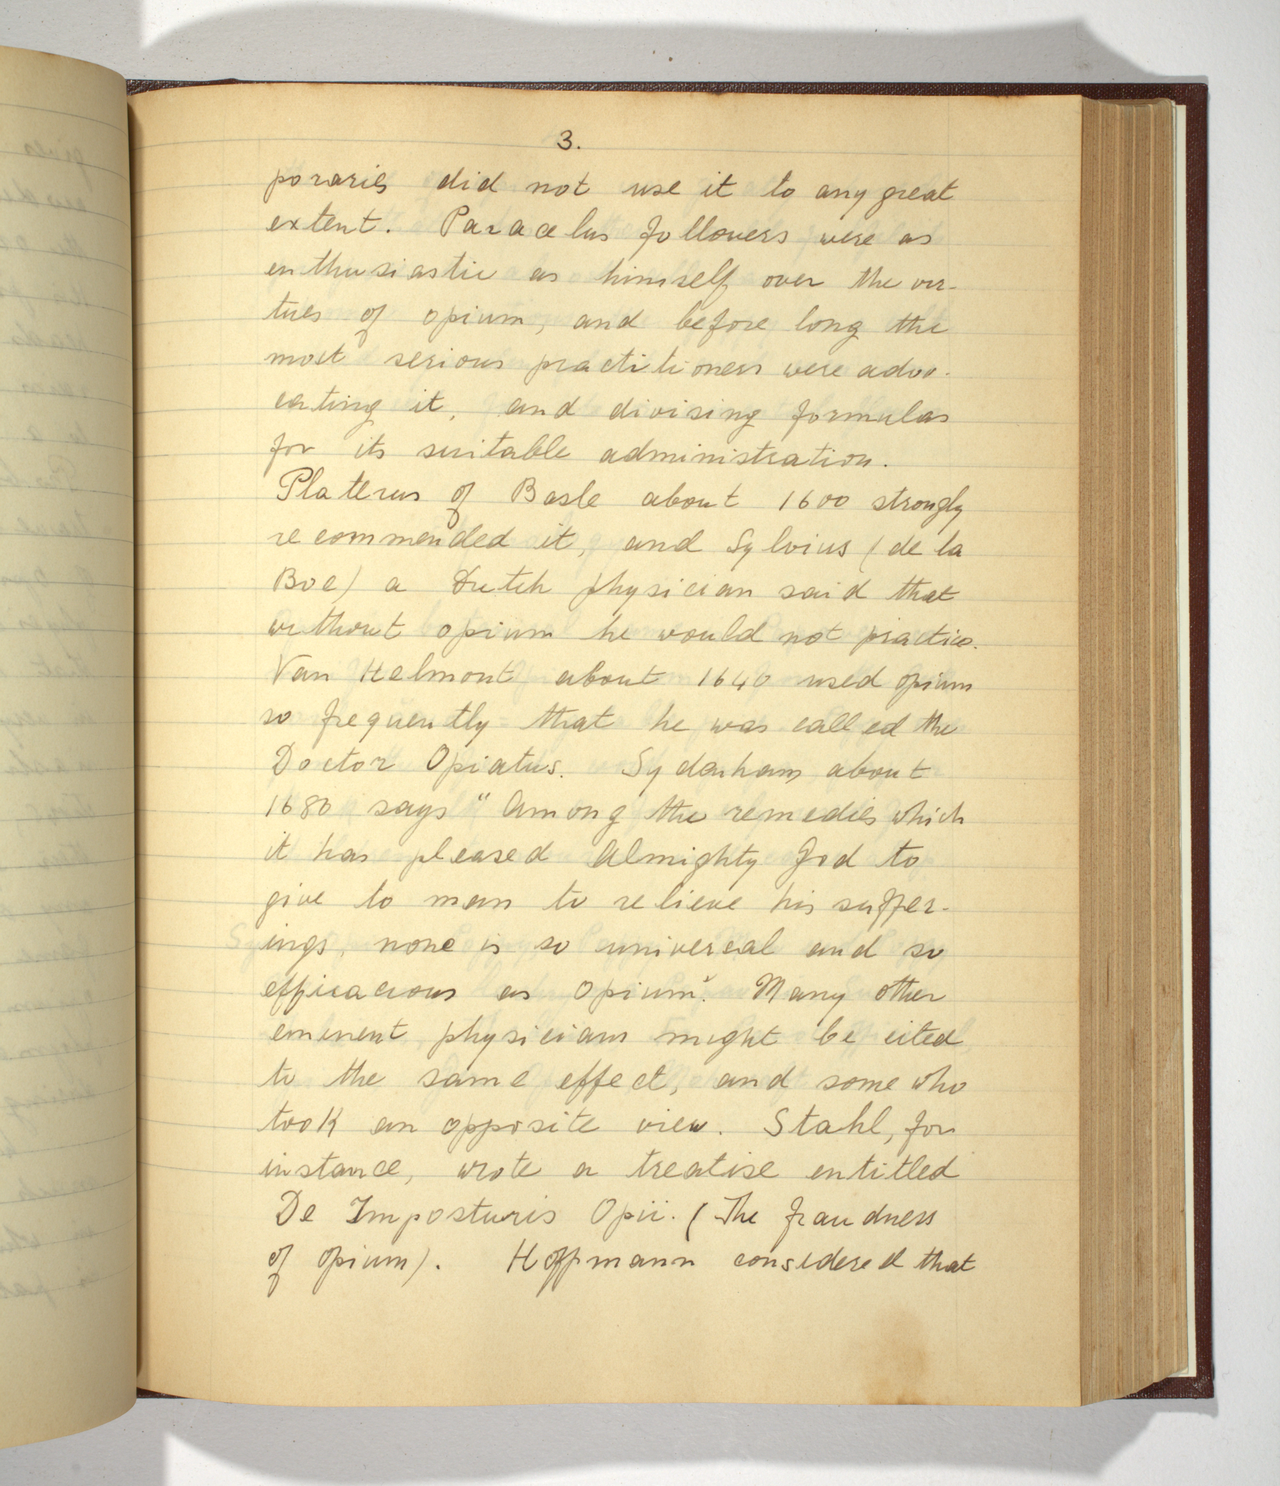 3.
poraries did not use it to any great
extent. Paracelus followers were as
enthusiastic as himself over the vir-
tues of opium, and before long the
most serious practitioners were advo-
cating it, and divising formulas
for its suitable administration.
Platerus of Basle about 1600 strongly
recommended it, and Sylvius (de la
Boe) a Dutch physician said that
without opium he would not practice.
Van Helmont about 1640 used opium
so frequently that he was called the
Doctor Opiatus. Sydenham about
1680 says "Among the remedies which
it has pleased Almighty God to
give to man to relieve his suffer-
ings, none is so universal and so
efficacious as Opium". Many other
eminent physicians might be cited
to the same effect, and some who
took an opposite view. Stahl, for
instance, wrote a treatise entitled
De Imposturis Opii. (The fraudness
of opium). Hoffmann considered that